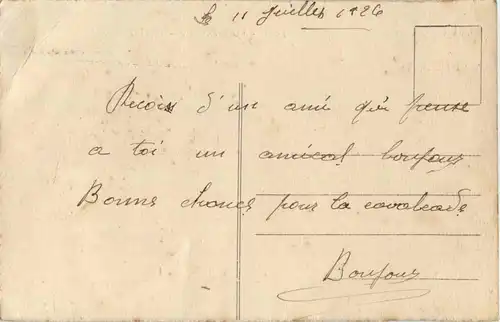 Le 11 Juillet 1926
Reçois d'un ami qui pense
a toi un amical bonjour
Bonne chance pour la cavalcade
Bonjour